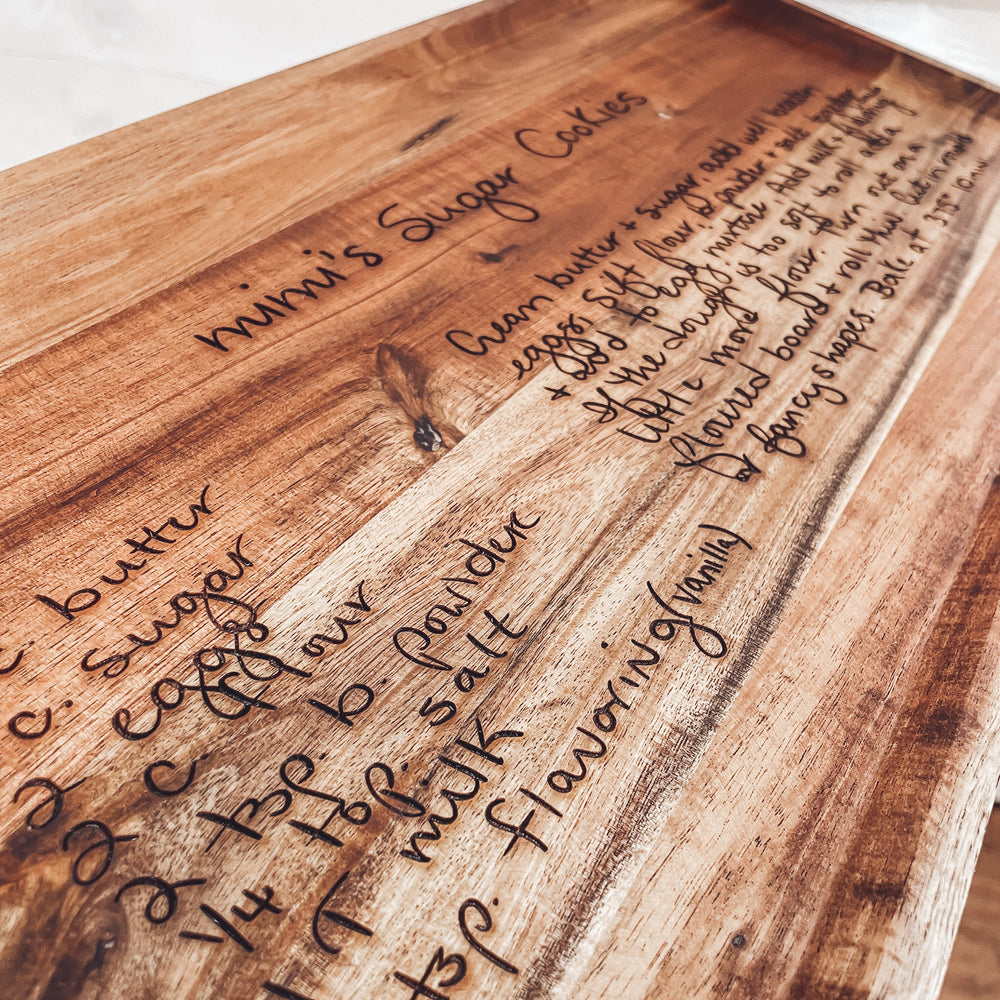 mimi's Sugar Cookies
c. butter
c. sugar
2 eggs
2 c. flour
2 tsp. b. powder
1/4 tsp. salt
T milk
tsp. flavoring (vanilla)
Cream butter + sugar, add well beaten
eggs. Sift flour, b. powder + salt together
+ Add to egg mixture. Add milk + flavoring
If the dough is too soft to roll add a
little more flour. Turn out on a
floured board + roll thin. Cut in rounds
or fancy shapes. Bake at 375° 10 min